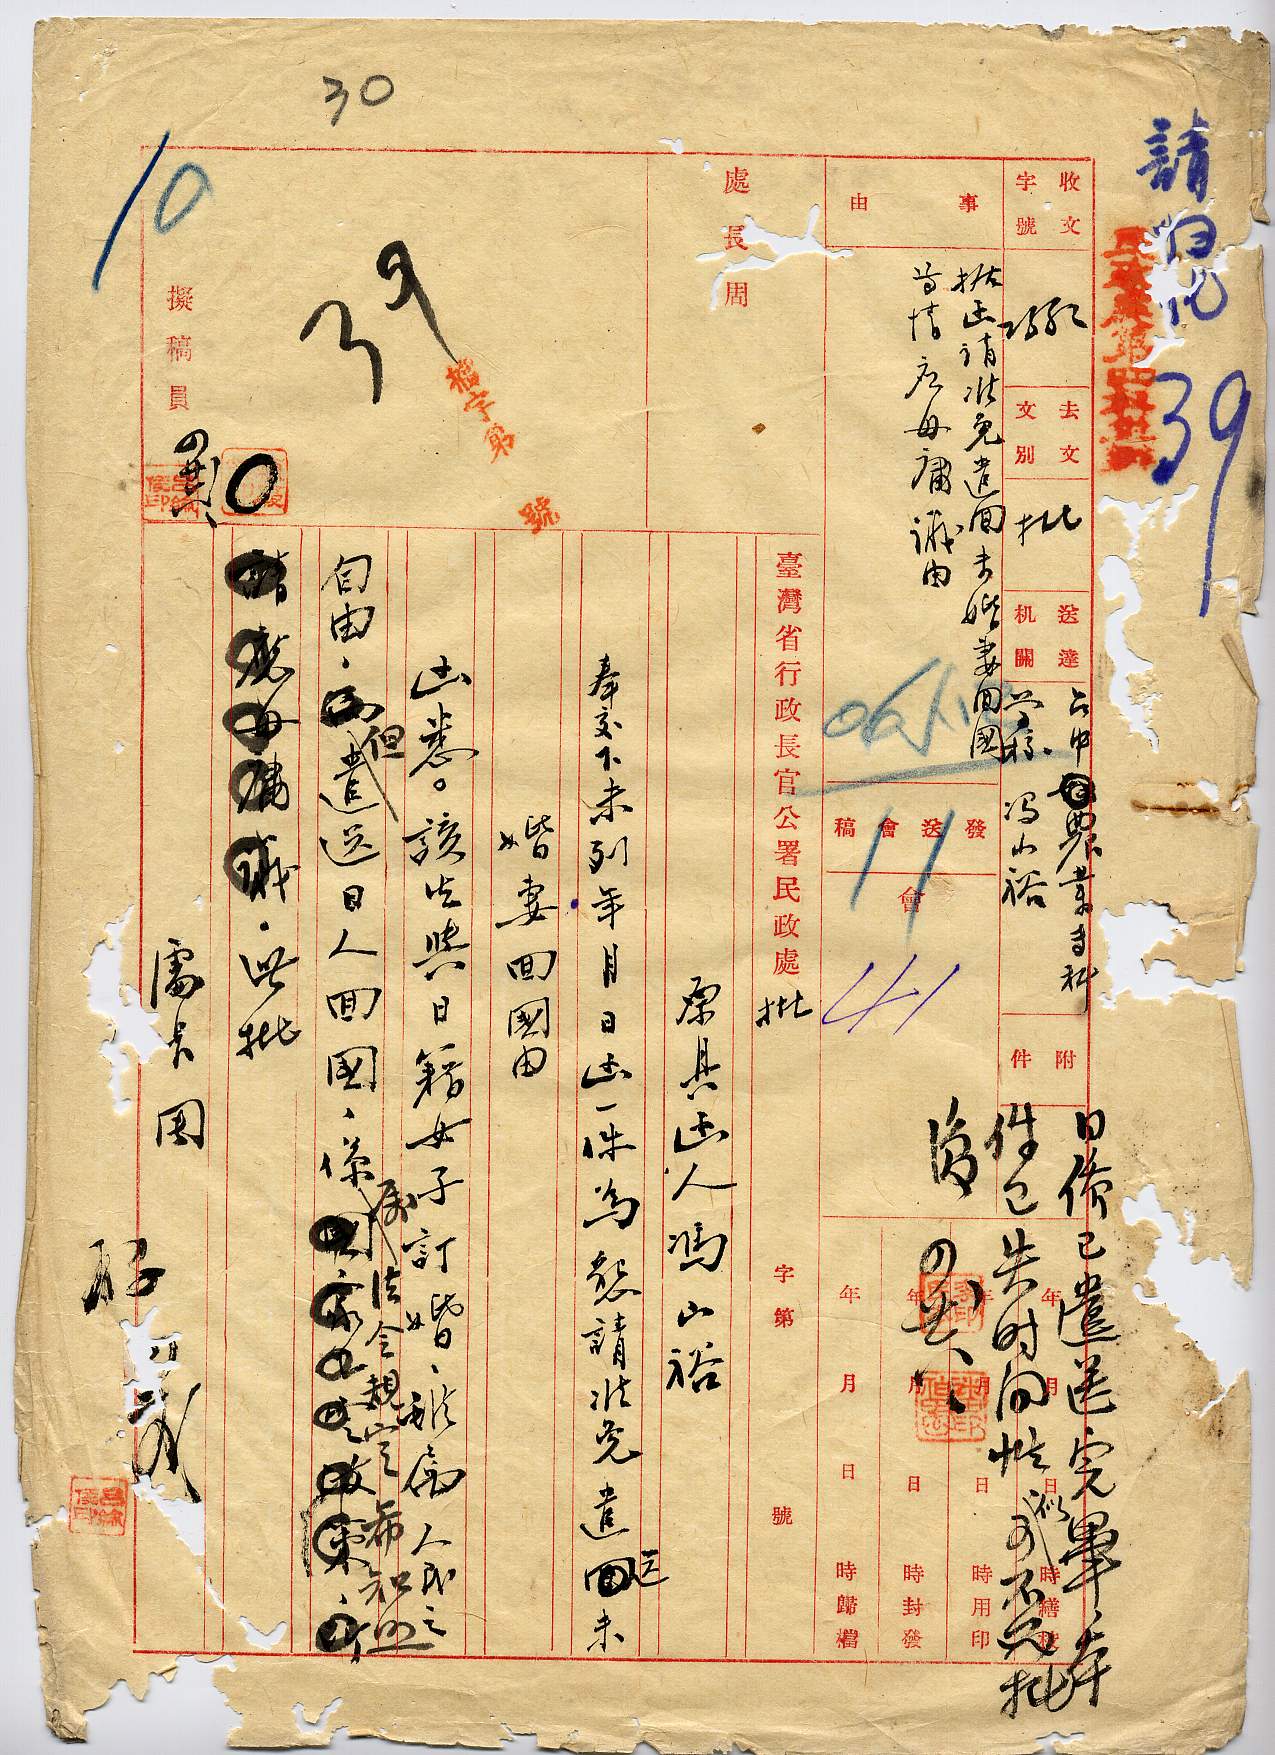 30
10
請歸檔
39
收文字號
去文文別
批
送達机關
台中農業專科學校 馮山裕
附件
事由
據函請准免遣回未婚妻回國
等情應毋庸議由
處長周
39
檔字第
號
擬稿員
發送會稿
會
11
41
年月日時繕校
年月日時用印
年月日時封發
年月日時歸檔
日僑已遣送完畢,本
件已失時間性似可不必批
復
臺灣省行政長官公署民政處批
字第 號
原具函人馮山裕
奉交下未列年月日函一件為懇請准免遣送未
婚妻回國由
函悉。該生與日籍女子訂婚,雖屬人民之
自由,但遣送日人回國,係屬法令規定希知照
請應毋庸議.此批
處長周